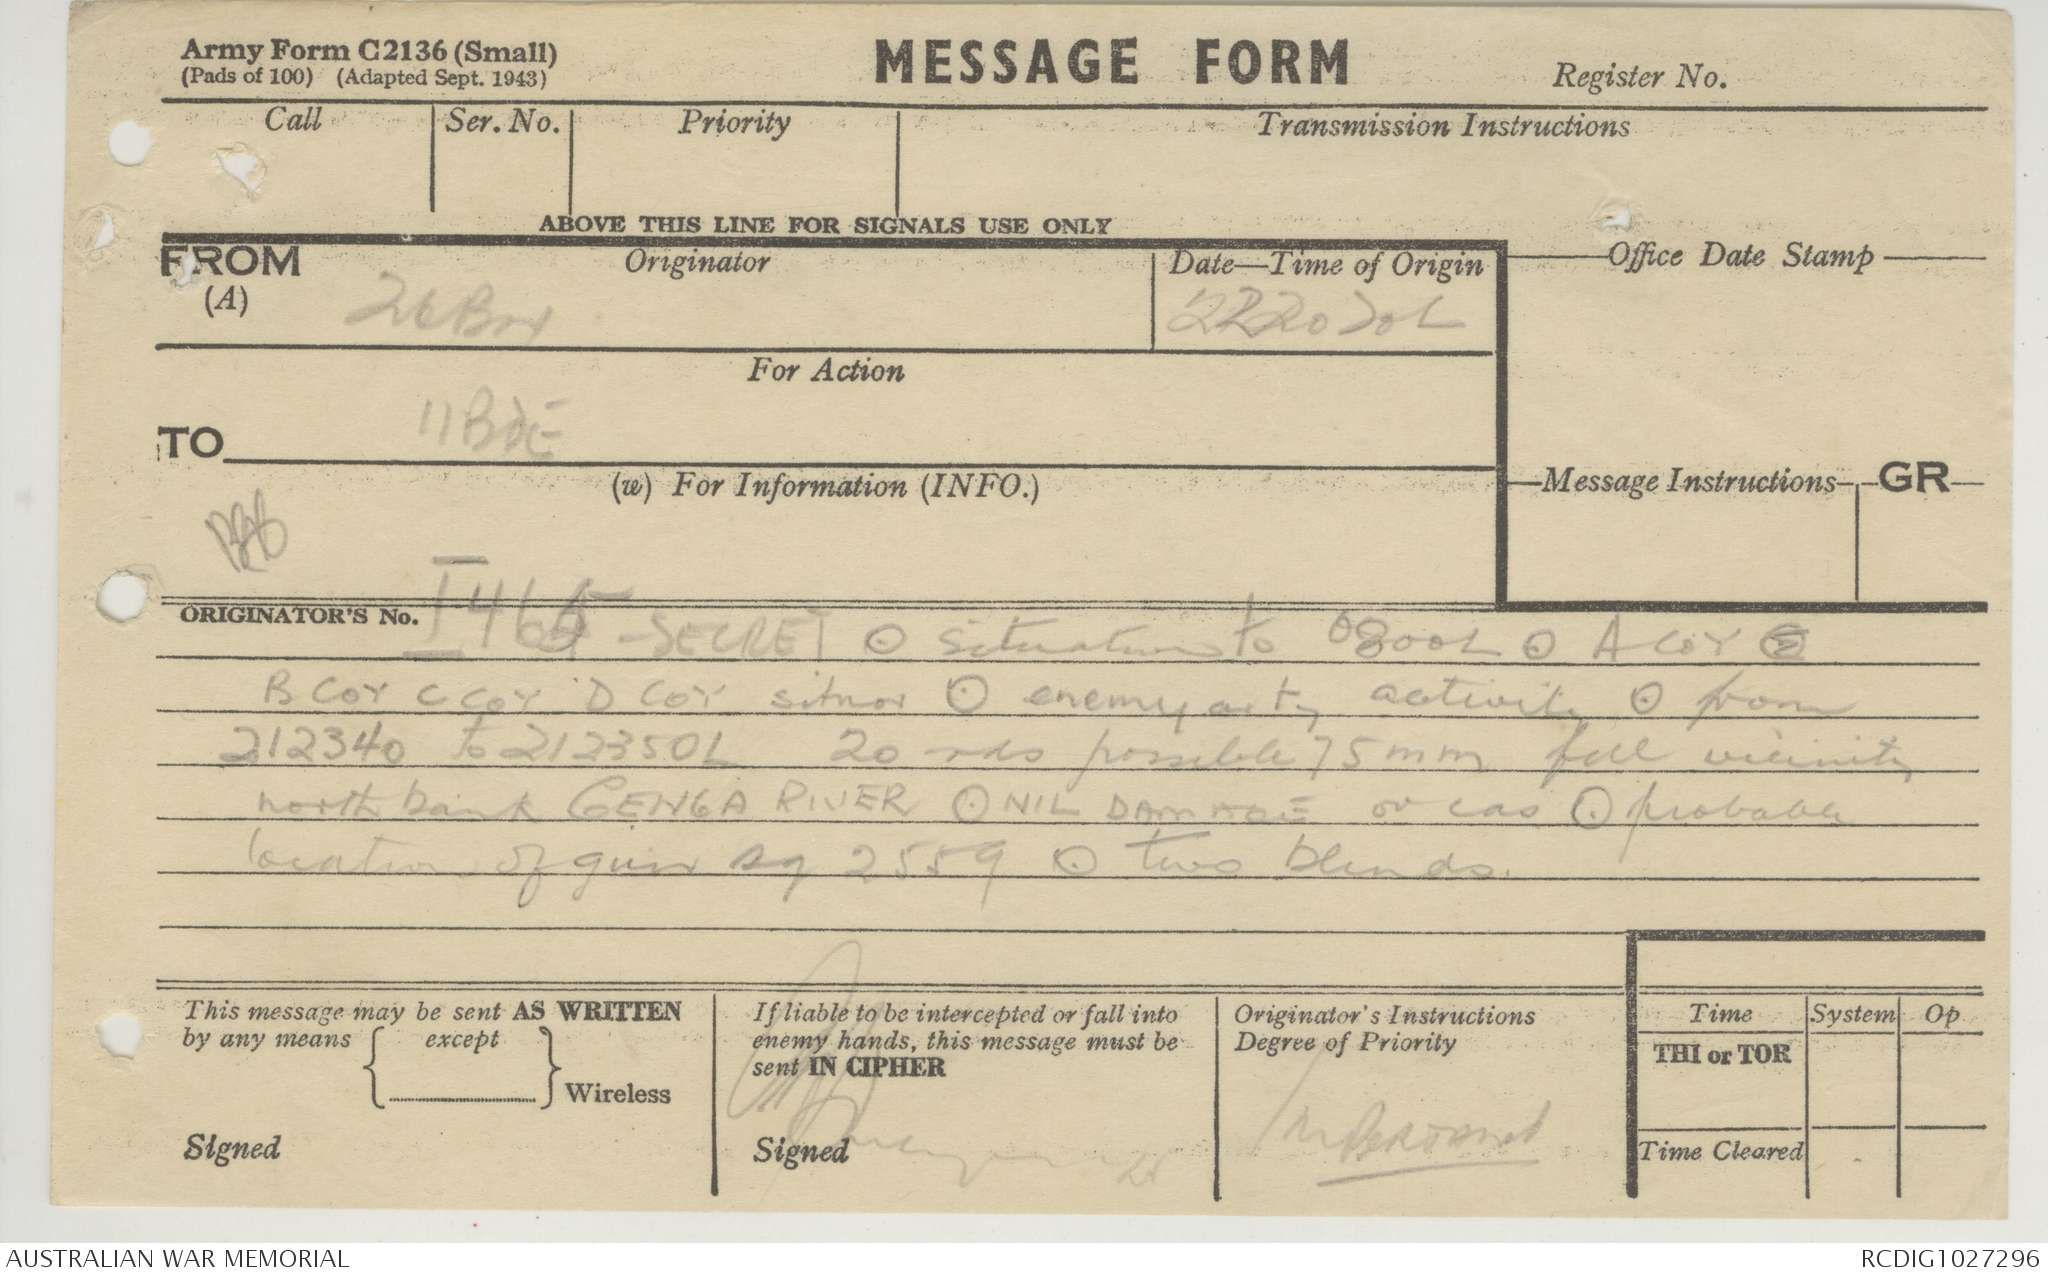 Army Form C2136 (Small)
(Pads of 100) (Adapted Sept. 1943)
MESSAGE FORM
Register No.
Call
Ser. No.
Priority
Transmission Instructions
ABOVE THIS LINE FOR SIGNALS USE ONLY
FROM
(A)
Originator
26 Bn
Date—Time of Origin
Office Date Stamp
For Action
TO
11 BDE
(w) For Information (INFO.)
Message Instructions
GR
ORIGINATOR'S No.
SECRET ⊙ situation to 0800L ⊙ A COY
B COY C COY D COY sitnor ⊙ enemy arty activity ⊙ from
212340 to 212350L 20 rds possible 75 mm fell vicinity
north bank GENGA RIVER ⊙ NIL DAMAGE or cas ⊙ probable
location of gun sq 2559 ⊙ two blinds.
This message may be sent AS WRITTEN
by any means except
Wireless
Signed
If liable to be intercepted or fall into
enemy hands, this message must be
sent IN CIPHER
Signed
Originator's Instructions
Degree of Priority
Time
System
Op
THI or TOR
Time Cleared
AUSTRALIAN WAR MEMORIAL
RCDIG1027296